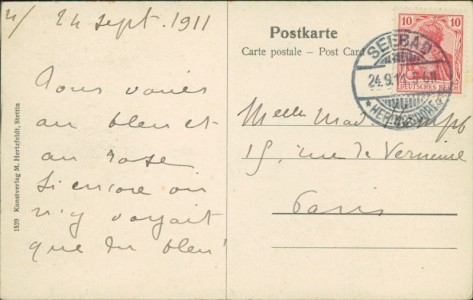 4/ 24 Sept. 1911
Postkarte
Carte postale – Post Card
10 10
DEUTSCHES REICH
SEEBAD
24.9.11
HERINGSDORF
Vous varies
au bleu et
au rose
Si encore on
n'y voyait
que du bleu!
Melle Mad
15, rue de Verneuil
Paris
1539 Kunstverlag M. Hertzfeldt, Stettin